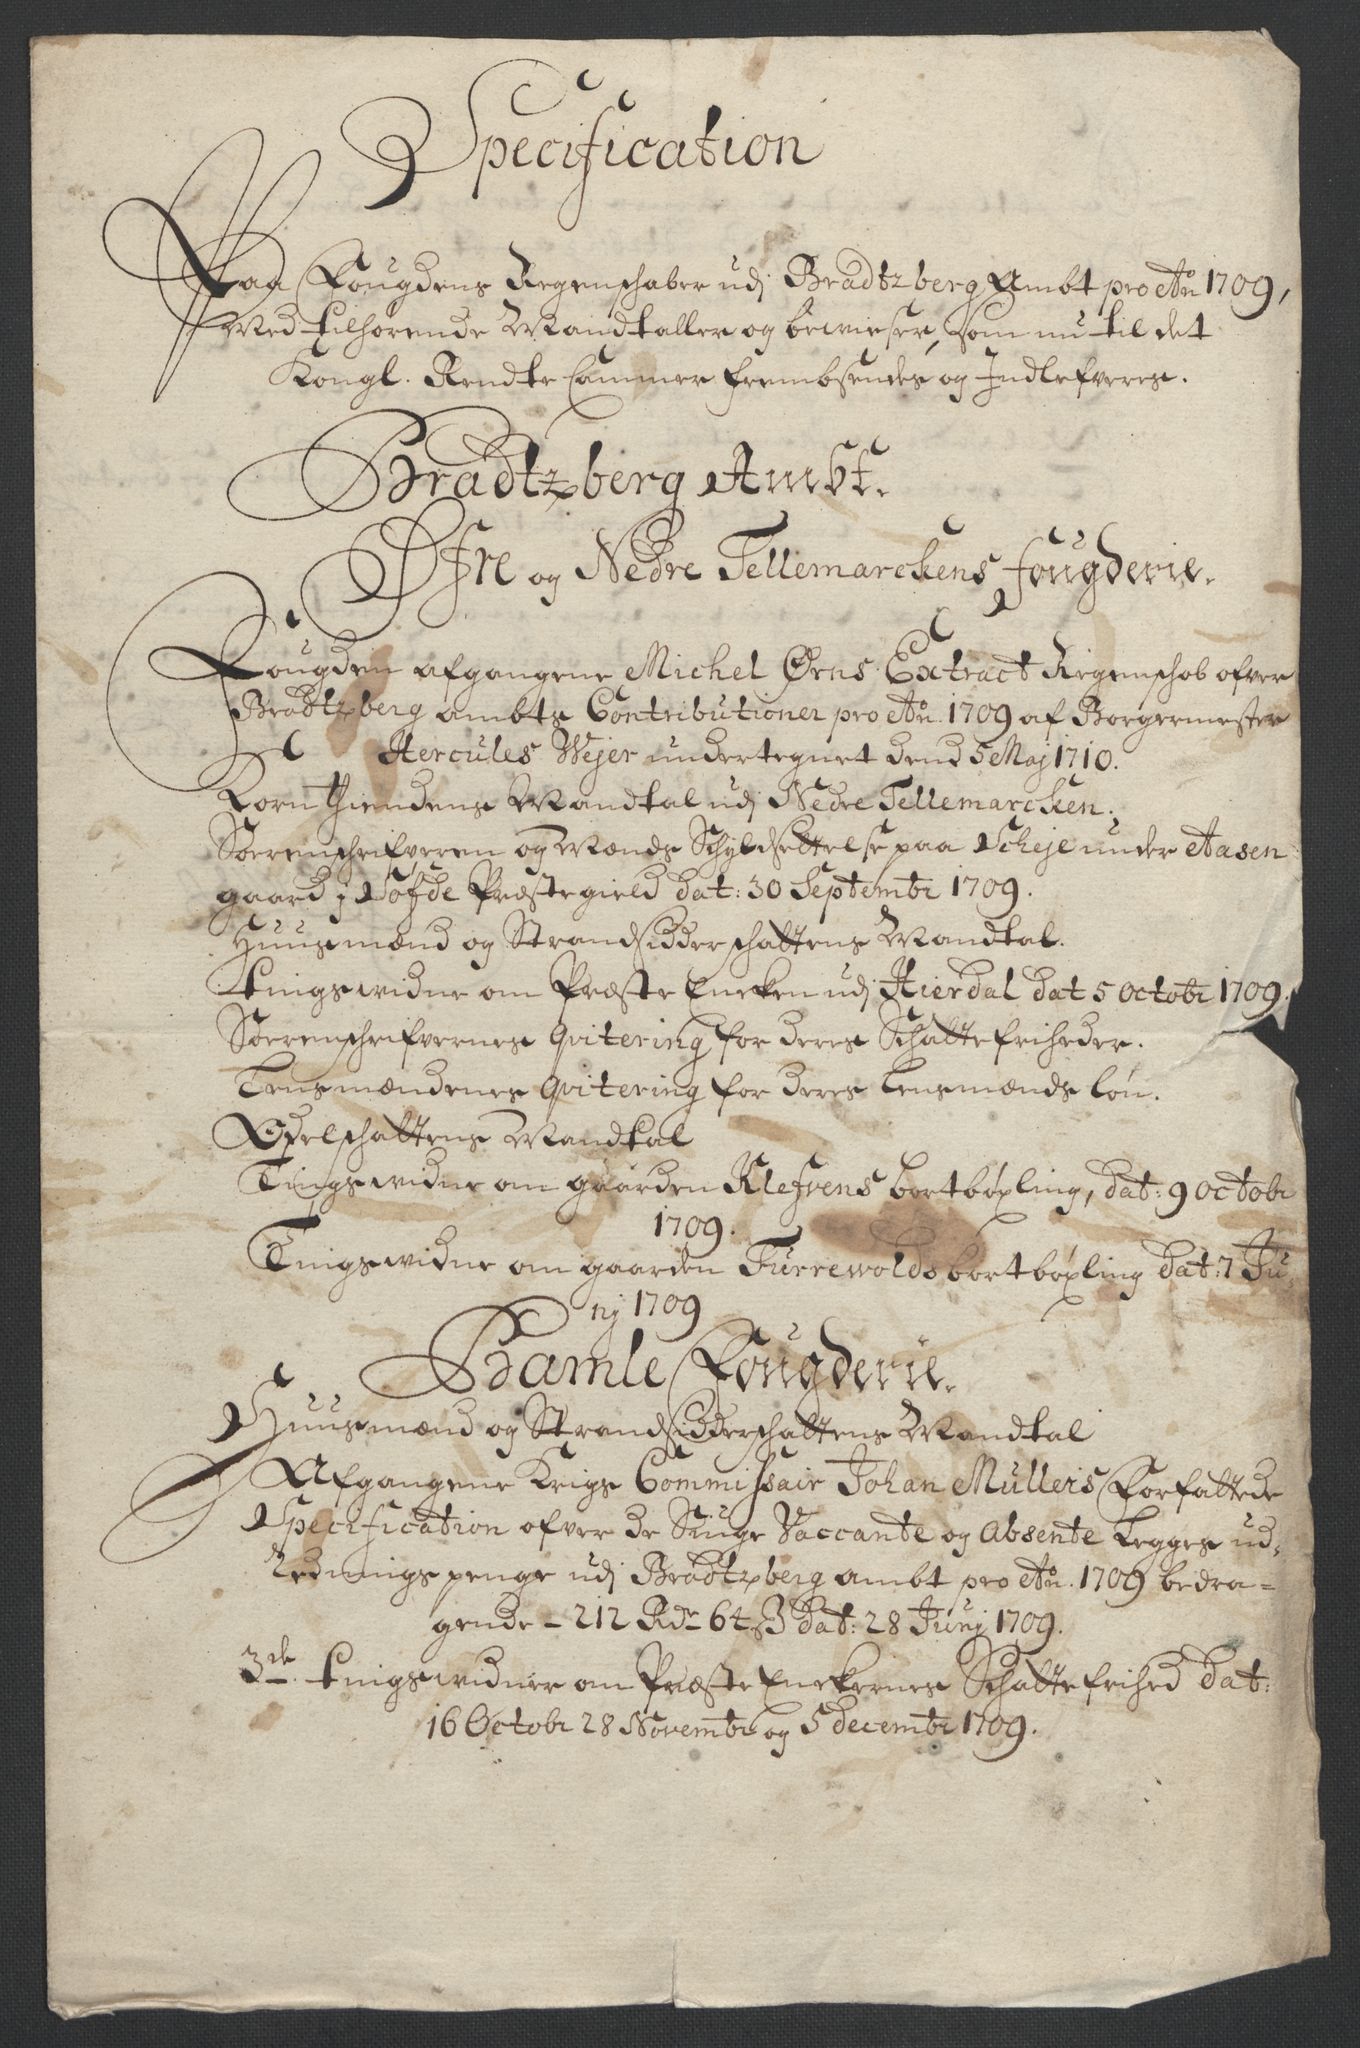 Specification
Paa Fougdens Regenschaber udj Bradtzberg Ambt pro Ao 1709,
Med tilhørende Mandtaller og bewieser, som nu til det
Kongl. Rendte Cammer frembsendes og Indlefveres.
Bradtzberg Ambt.
Øfre og Nedre Tellemarckens fougderie.
Fougden afgangene Michel Ørns Extract Regenschab ofver
Bradtzberg ambts Contributioner pro Ao. 1709 af Borgermester
Hercules Wejer undertegnet dend 5 Maj 1710.
Korn Thiendens Mandtal udj Nedre Tellemarcken.
Sorenschrifveren og Mænds Schyldsettelse paa Scheje under Aasen
gaard j Søfde Præstegield dat: 30 Septembr 1709.
Huusmænd og Strandsidderschattens Mandtal.
Tingswidne om Præste Encken udj Hierdal dat 5 Octobr 1709.
Sorenschrifvernes Qvitering for deres Schattefriheder.
Lensmændenes Qvitering for deres Lensmænds løn.
Odelschattens Mandtal
Tingswidne om gaarden Klefvens bortbøxling, dat: 9 Octobr
1709.
Tingswidne om gaarden Turrewolds bortbøxling dat: 7 Ju-
nj 1709
Bamle Fougderie.
Huusmænd og Strandsidderschattens Mandtal
Afgangene Krigs Commissair Johan Mullers Forfattede
Specification ofver de Siuge Vaccante og Absente Legges ud-
Rednings penge udj Bradtzberg ambt pro Ao. 1709 bedra-
gende - 212 Rdr 64 ß dat: 28 Junj 1709.
3de Tingswidner om Præste Enckernes Schattefrihed dat:
16 Octobr 28 Novembr og 5 decembr 1709.